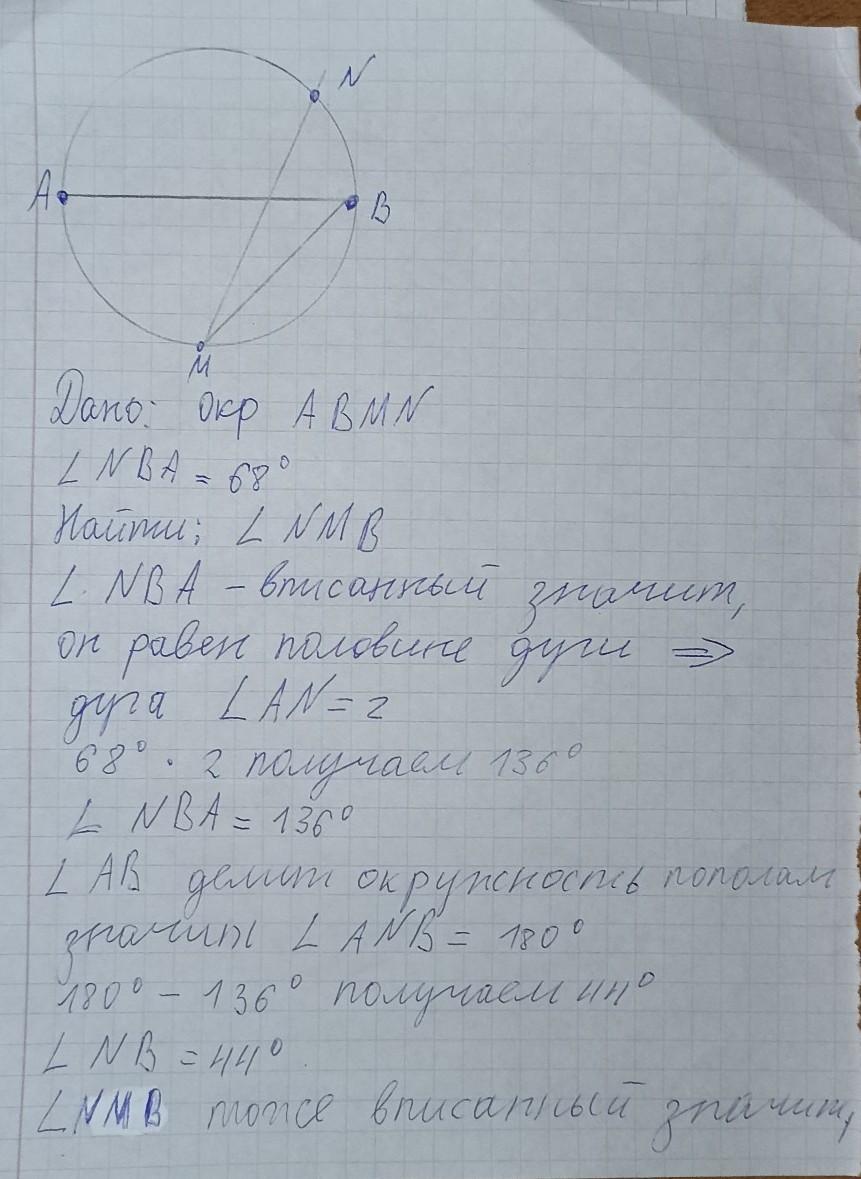 N
A
B
M
Дано: окр ABMN
∠ NBA = 68°
Найти: ∠ NMB
∠ NBA – вписанный значит,
он равен половине дуги ⇒
дуга ∠ AN = 2
68° · 2 получаем 136°
∠ NBA = 136°
∠ AB делит окружность пополам
значит ∠ ANB = 180°
180° – 136° получаем 44°
∠ NB = 44°
∠ NMB тоже вписанный значит,